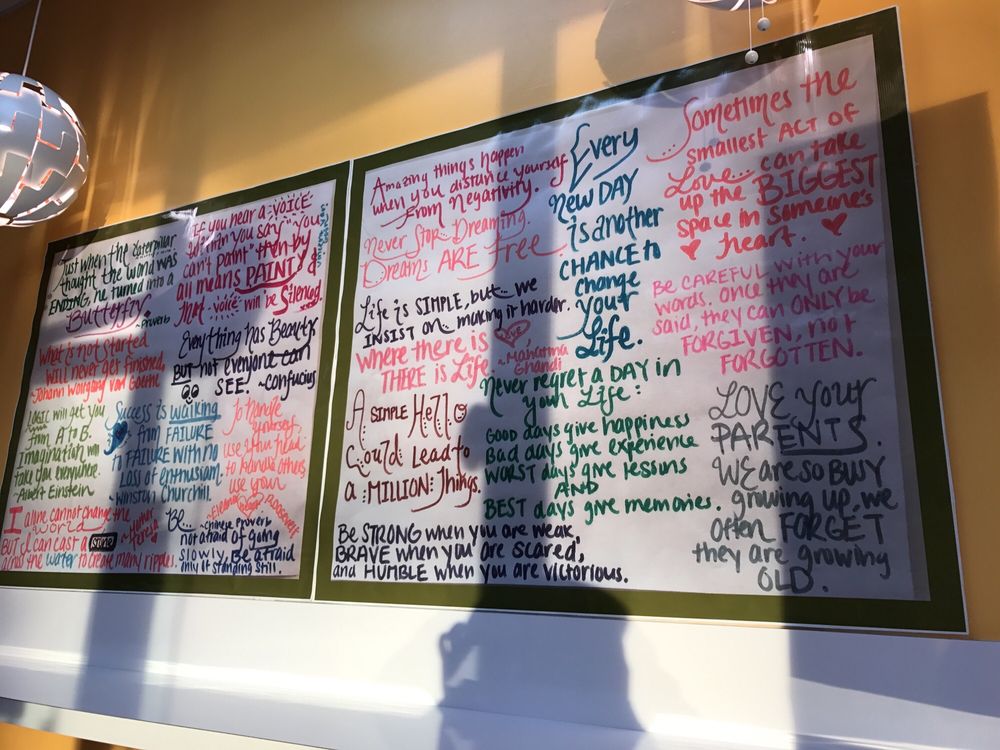 Just when the caterpillar
thought the world was
ENDING, he turned into a
Butterfly.
~Proverb
If you hear a VOICE
within you say "You
can't paint" then by
all means PAINT,
that voice will be Silenced.
Everything has Beauty
BUT not everyone can
SEE. ~Confucius
What is not started
will never get finished,
~Johann Wolfgang Van Goethe
LOGIC will get you
from A to B.
Imagination will
take you everywhere.
~Albert Einstein
Success is walking
from FAILURE
to FAILURE with no
Loss of enthusiasm.
~Winston Churchill
To handle
yourself,
use your head
to handle others
use your
heart
~Eleanor Roosevelt
I alone cannot change the
world
BUT I can cast a stone
across the water to create many ripples.
~Mother Teresa
Be... ~Chinese Proverb
not afraid of going
slowly, Be afraid
only of standing still.
Amazing things happen
when you distance yourself
from negativity.
Never Stop Dreaming.
Dreams ARE free.
Life is SIMPLE, but... we
INSIST on... making it harder.
Where there is Love
THERE is Life
~Mahatma
Ghandi
A SIMPLE Hello
Could Lead to
a MILLION Things.
Every
NEW DAY
is another
CHANCE to
change
your
Life.
Never regret a DAY in
your Life:
GOOD days give happiness
Bad days give experience
WORST days give lessons
AND
BEST days give memories.
Be STRONG when you are weak,
BRAVE when you are scared,
and HUMBLE when you are victorious.
Sometimes the
smallest ACT OF
Love... can take
up the BIGGEST
space in someone's
heart.
Be CAREFUL with your
words. Once they are
said, they can ONLY be
FORGIVEN, not
FORGOTTEN.
LOVE your
PARENTS.
WE are so BUSY
growing up, we
often FORGET
they are growing
OLD.